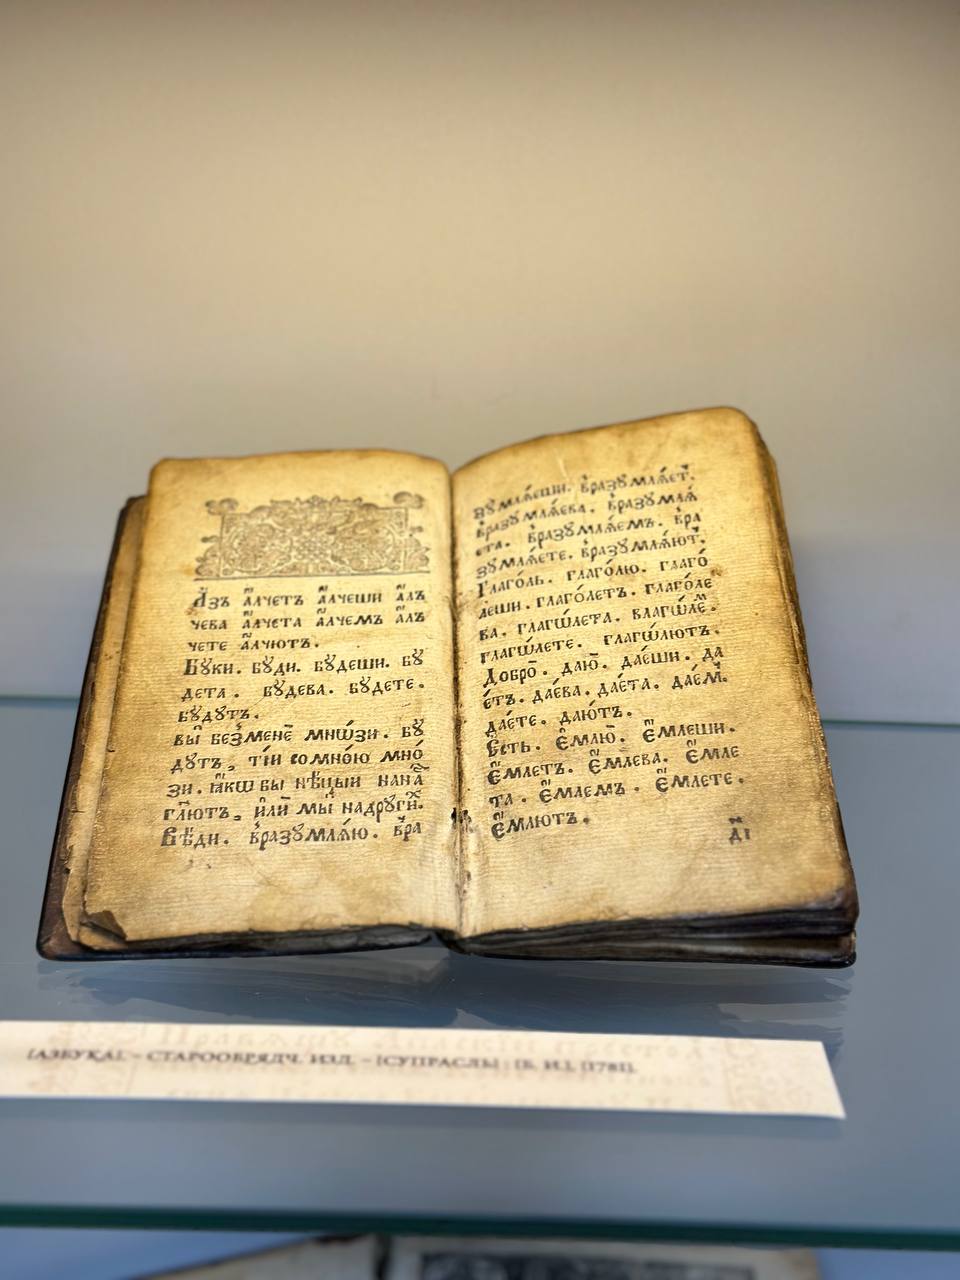 А҆́зъ а҆́лчетъ а҆́лчеши а҆́лъ
чева а҆́лчета а҆́лчемъ а҆́лъ
чете а҆́лчютъ.
Бꙋ́ки. бꙋ́ди. бꙋ́деши. бꙋ́
дета. бꙋ́дева. бꙋ́дете.
бꙋ́дꙋтъ.
вы̀ безменѐ мнѡ́зи. бꙋ́
дꙋтъ, ті́и сомно́ю мно́
зи. ꙗ҆́кѡ бы нѣ́цыи нана̀
гл҃ютъ, и҆лѝ мы̀ надрꙋги́х.
Вѣ́ди. вразꙋмлѧ́ю. вра
зꙋмлѧ́еши. вразꙋмлѧ́ет.
вразꙋмлѧ́ева. вразꙋмлѧ́
ета. вразꙋмлѧ́емъ. вра
зꙋмлѧ́ете. вразꙋмлѧ́ют.
Глаго́ль. глаго́лю. глаго́
леши. глаго́летъ. глаго́ле
ва. глаго́лета. глагѡ́лем.
глагѡ́лете. глагѡ́лютъ.
Добро̀. даю̀. дае́ши. да
е́тъ. дае́ва. дае́та. дае́м.
дае́те. даю́тъ.
Е҆́сть. є҆́млю. є҆́млеши.
є҆́млетъ. є҆́млева. є҆́мле
та. є҆́млемъ. є҆́млете.
є҆́млютъ.
д҃і
[АЗБУКА]. – СТАРООБРЯДЧ. ИЗД. – [СУПРАСЛЬ] : [Б. И.], [1781].